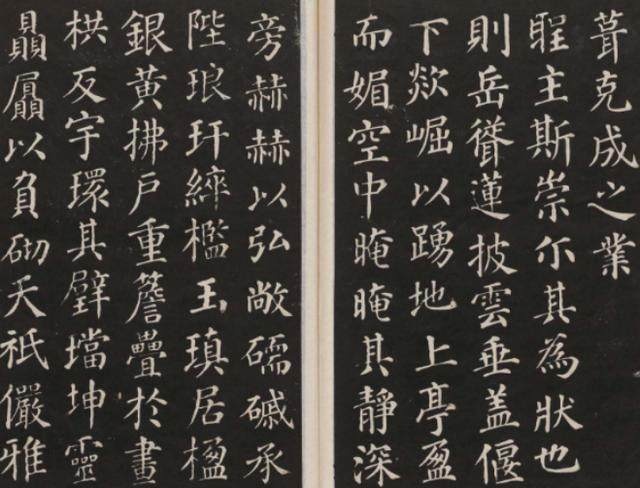 葺克成之業
聖主斯崇尒其為狀也
則岳聳蓮披雲垂蓋偃
下欻崛以踴地上亭盈
而媚空中晻晻其靜深
旁赫赫以弘敞碝磩承
陛琅玕綷檻玉瑱居楹
銀黃拂戶重簷疊於畫
栱反宇環其璧璫坤靈
贔屭以負砌天祇儼雅